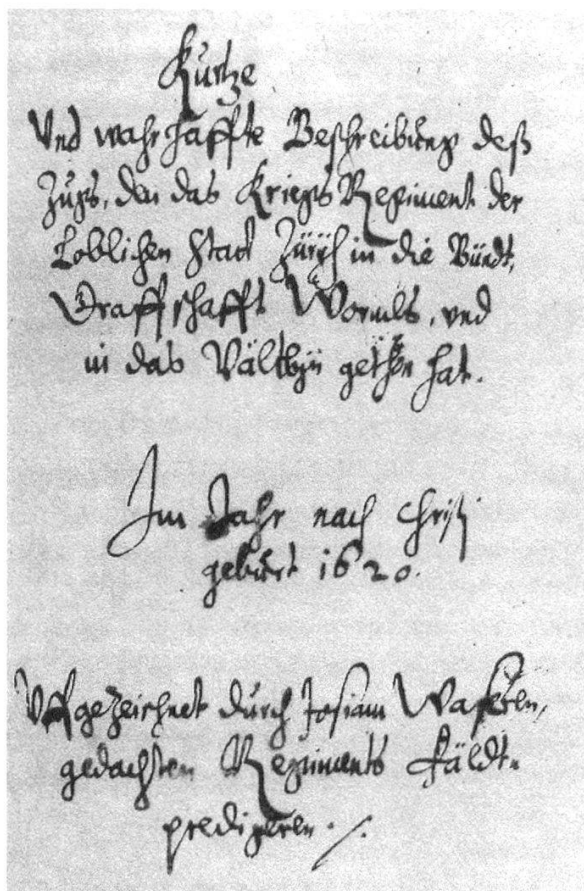 Kurtze
Vnd wahrhaffte Beschreibung deß
Zugs, den das Kriegs Regiment der
Loblichen Statt Zürÿch in die Bündt,
Graffschafft Wormbs, vnd
in das Vältlÿn gethon hat.
Im Jahr nach Christi
geburt 1620.
Vffgezeichnet durch Josiam Waseren,
gedachten Regiments Fäldt-
predigeren ./.